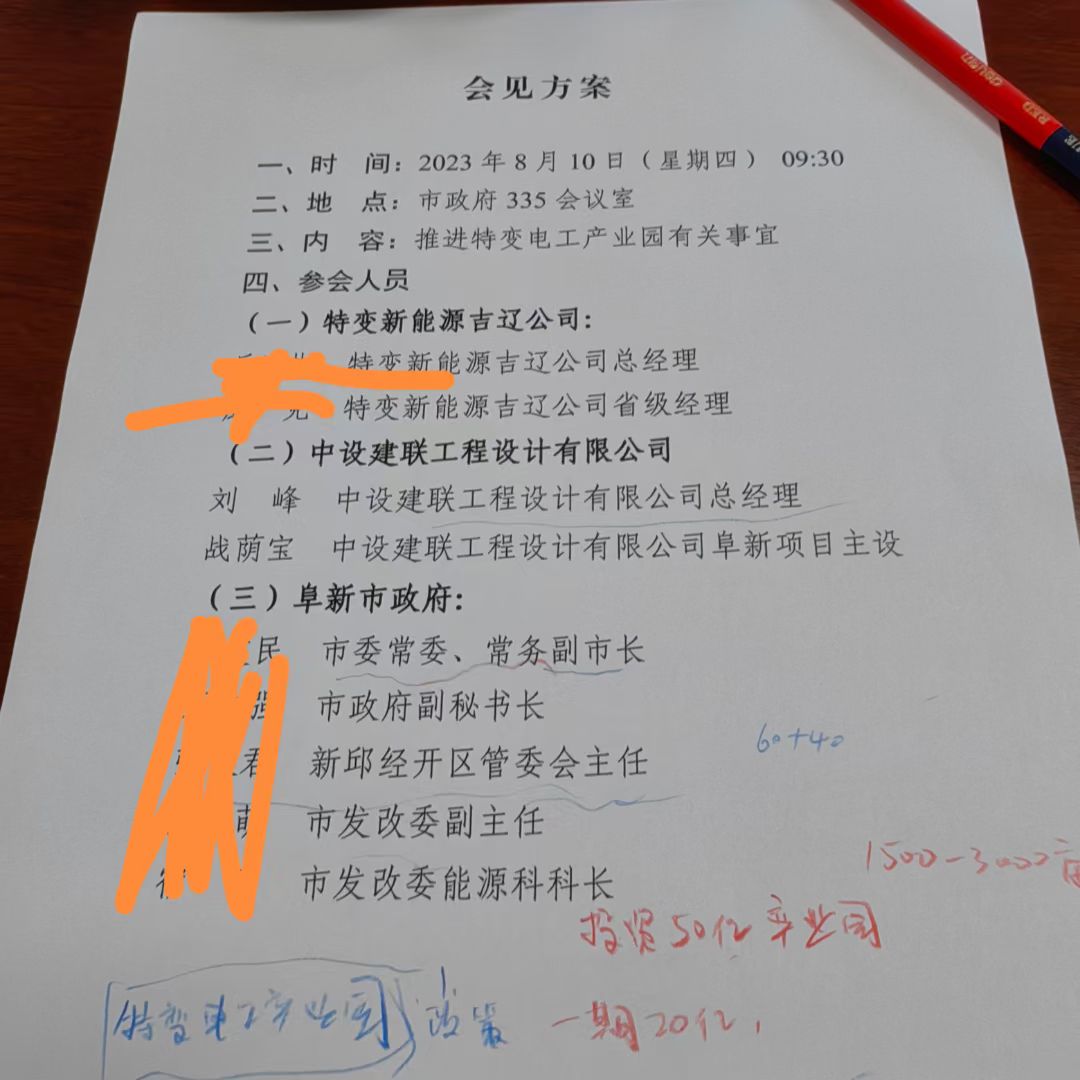 会见方案
一、时 间：2023年8月10日（星期四） 09:30
二、地 点：市政府335会议室
三、内 容：推进特变电工产业园有关事宜
四、参会人员
（一）特变新能源吉辽公司：
特变新能源吉辽公司总经理
特变新能源吉辽公司省级经理
（二）中设建联工程设计有限公司
刘 峰 中设建联工程设计有限公司总经理
战荫宝 中设建联工程设计有限公司阜新项目主设
（三）阜新市政府：
民 市委常委、常务副市长
市政府副秘书长
君 新邱经开区管委会主任
萌 市发改委副主任
市发改委能源科科长
60+40
1500-3000亩
投资50亿产业园
特变电工产业园 政策
一期20亿，
RED